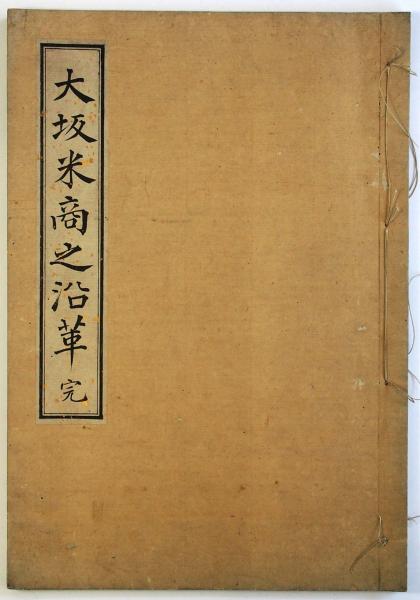 大坂米商之沿革 完